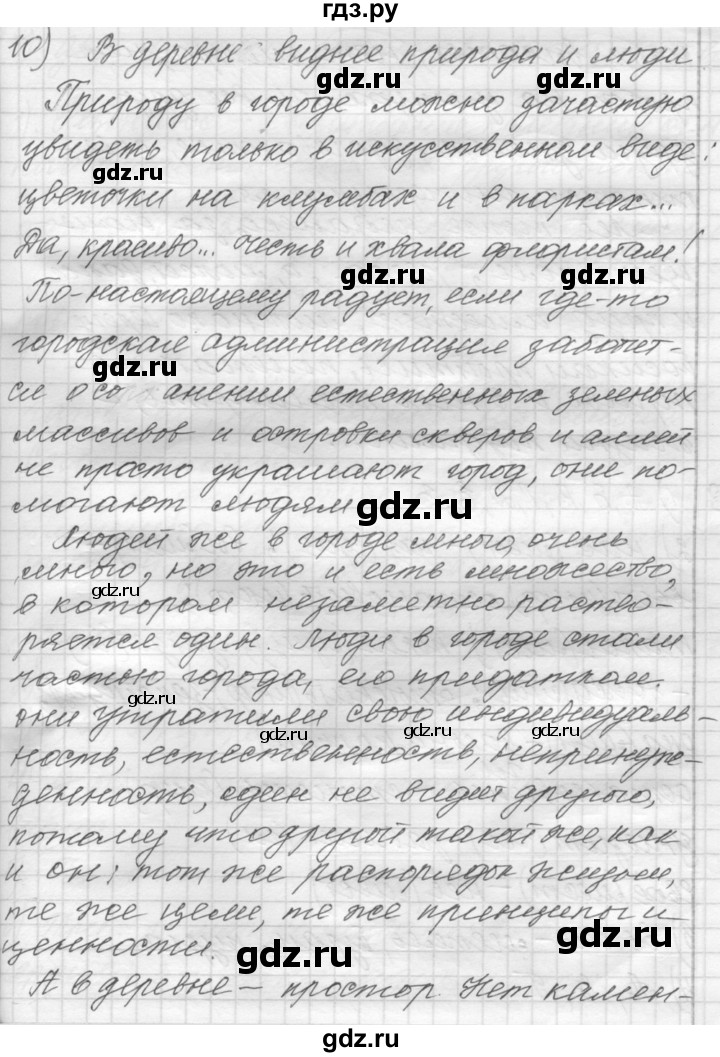 гдз.ру
10) В деревне виднее природа и люди
gdz.ru gdz.ru
Природу в городе можно зачастую
увидеть только в искусственном виде:
gdz.ru gdz.ru
цветочки на клумбах и в парках...
Да, красиво... Честь и хвала флористам!
gdz.ru gdz.ru
По-настоящему радует, если где-то
городская администрация заботит-
gdz.ru gdz.ru
ся о со анении естественных зеленых
массивов и островки скверов и аллей
не просто украшают город, они по-
могают людям
gdz.ru gdz.ru
Людей же в городе много, очень
много, но это и есть множество,
gdz.ru gdz.ru
в котором незаметно раство-
ряется один. Люди в городе стали
частью города, его придатком.
gdz.ru gdz.ru
Они утратили свою индивидуаль-
gdz.ru gdz.ru
ность, естественность, неприну​ж-
денность, один не видит другого,
потому что другой такой же, как
и он: тот же распорядок жизни,
gdz.ru gdz.ru
те же цели, те же принципы и
ценности.
gdz.ru gdz.ru
А в деревне – простор. Нет камен-
gdz.ru gdz.ru
gdz.ru